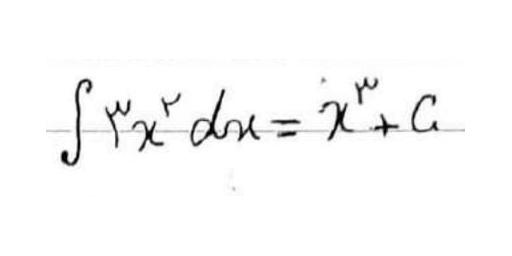 ∫ ۳x^۲ dx = x^۳ + C